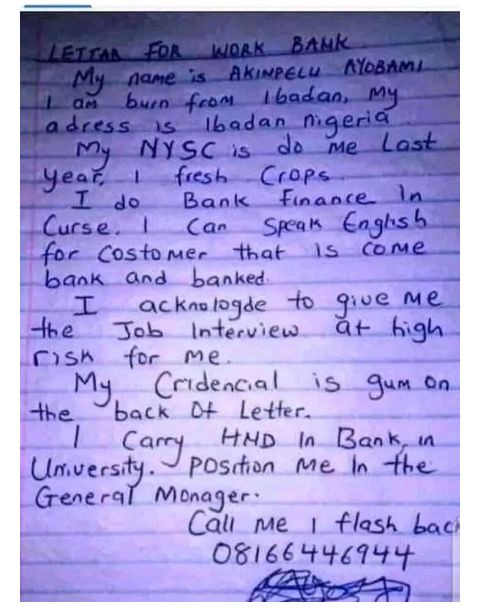 LETTAR FOR WORK BANK
My name is AKINPELU AYOBAMI
I am burn from Ibadan, My
adress is Ibadan nigeria
My NYSC is do me Last
year, I fresh Crops
I do Bank Finance In
Curse. I Can Speak English
for Costomer that is come
bank and banked.
I acknologde to give me
the Job Interview at high
risk for me.
My Cridencial is gum on
the back Of Letter.
I Carry HND In Bank, in
University. Position Me In the
General Manager.
Call me I flash back
08166446944